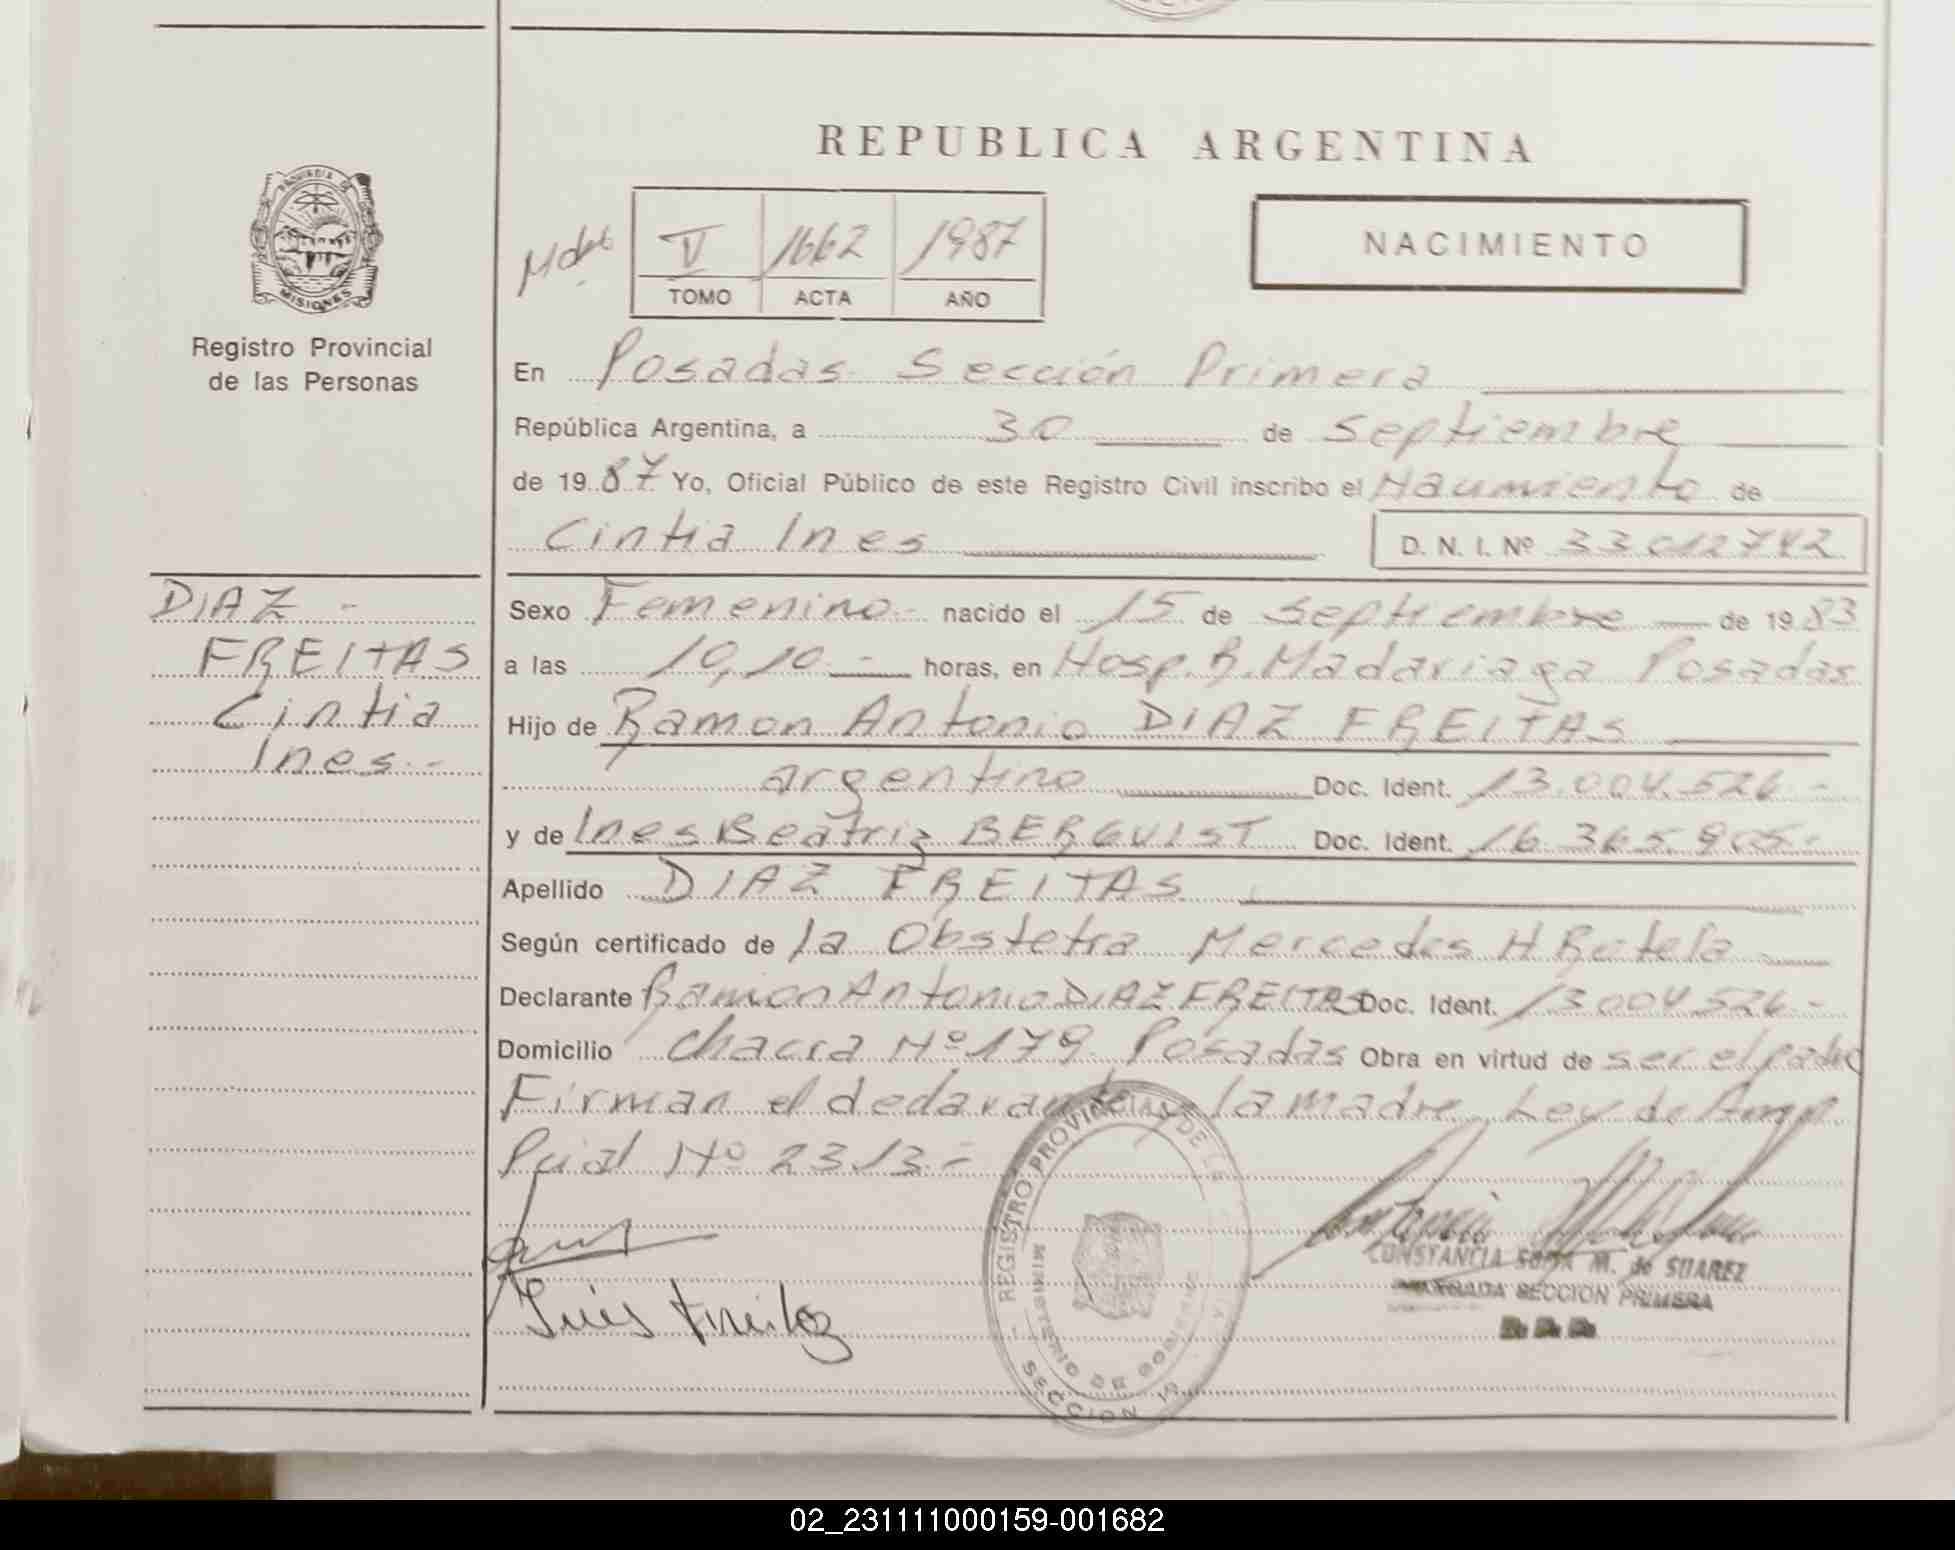 REPUBLICA ARGENTINA
PROVINCIA DE
MISIONES
Registro Provincial
de las Personas
V 1662 1987
TOMO ACTA AÑO
NACIMIENTO
En Posadas Sección Primera
República Argentina, a 30 de Septiembre
de 1987 Yo, Oficial Público de este Registro Civil inscribo el Nacimiento de
Cintia Ines D. N. I. Nº 33012742
DIAZ -
FREITAS
Cintia
Ines.-
Sexo Femenino.- nacido el 15 de Septiembre de 1983
a las 10,10.- horas, en Hosp. R. Madariaga Posadas
Hijo de Ramon Antonio DIAZ FREITAS
argentino Doc. Ident. 13.004.526.-
y de Ines Beatriz BERGUIST Doc. Ident. 16.365.905.-
Apellido DIAZ FREITAS
Según certificado de la Obstetra Mercedes H Rotela
Declarante Ramon Antonio DIAZ FREITAS Doc. Ident. 13.004.526.-
Domicilio Chacra Nº 179 Posadas Obra en virtud de ser el padre
Firman el declarante y la madre. Ley de
Pcial Nº 2313.-
REGISTRO PROVINCIAL DE LAS
MINISTERIO DE GOBIERNO
SECCION 1ª
CONSTANCIA M. de SUAREZ
SECCION PRIMERA
02_231111000159-001682